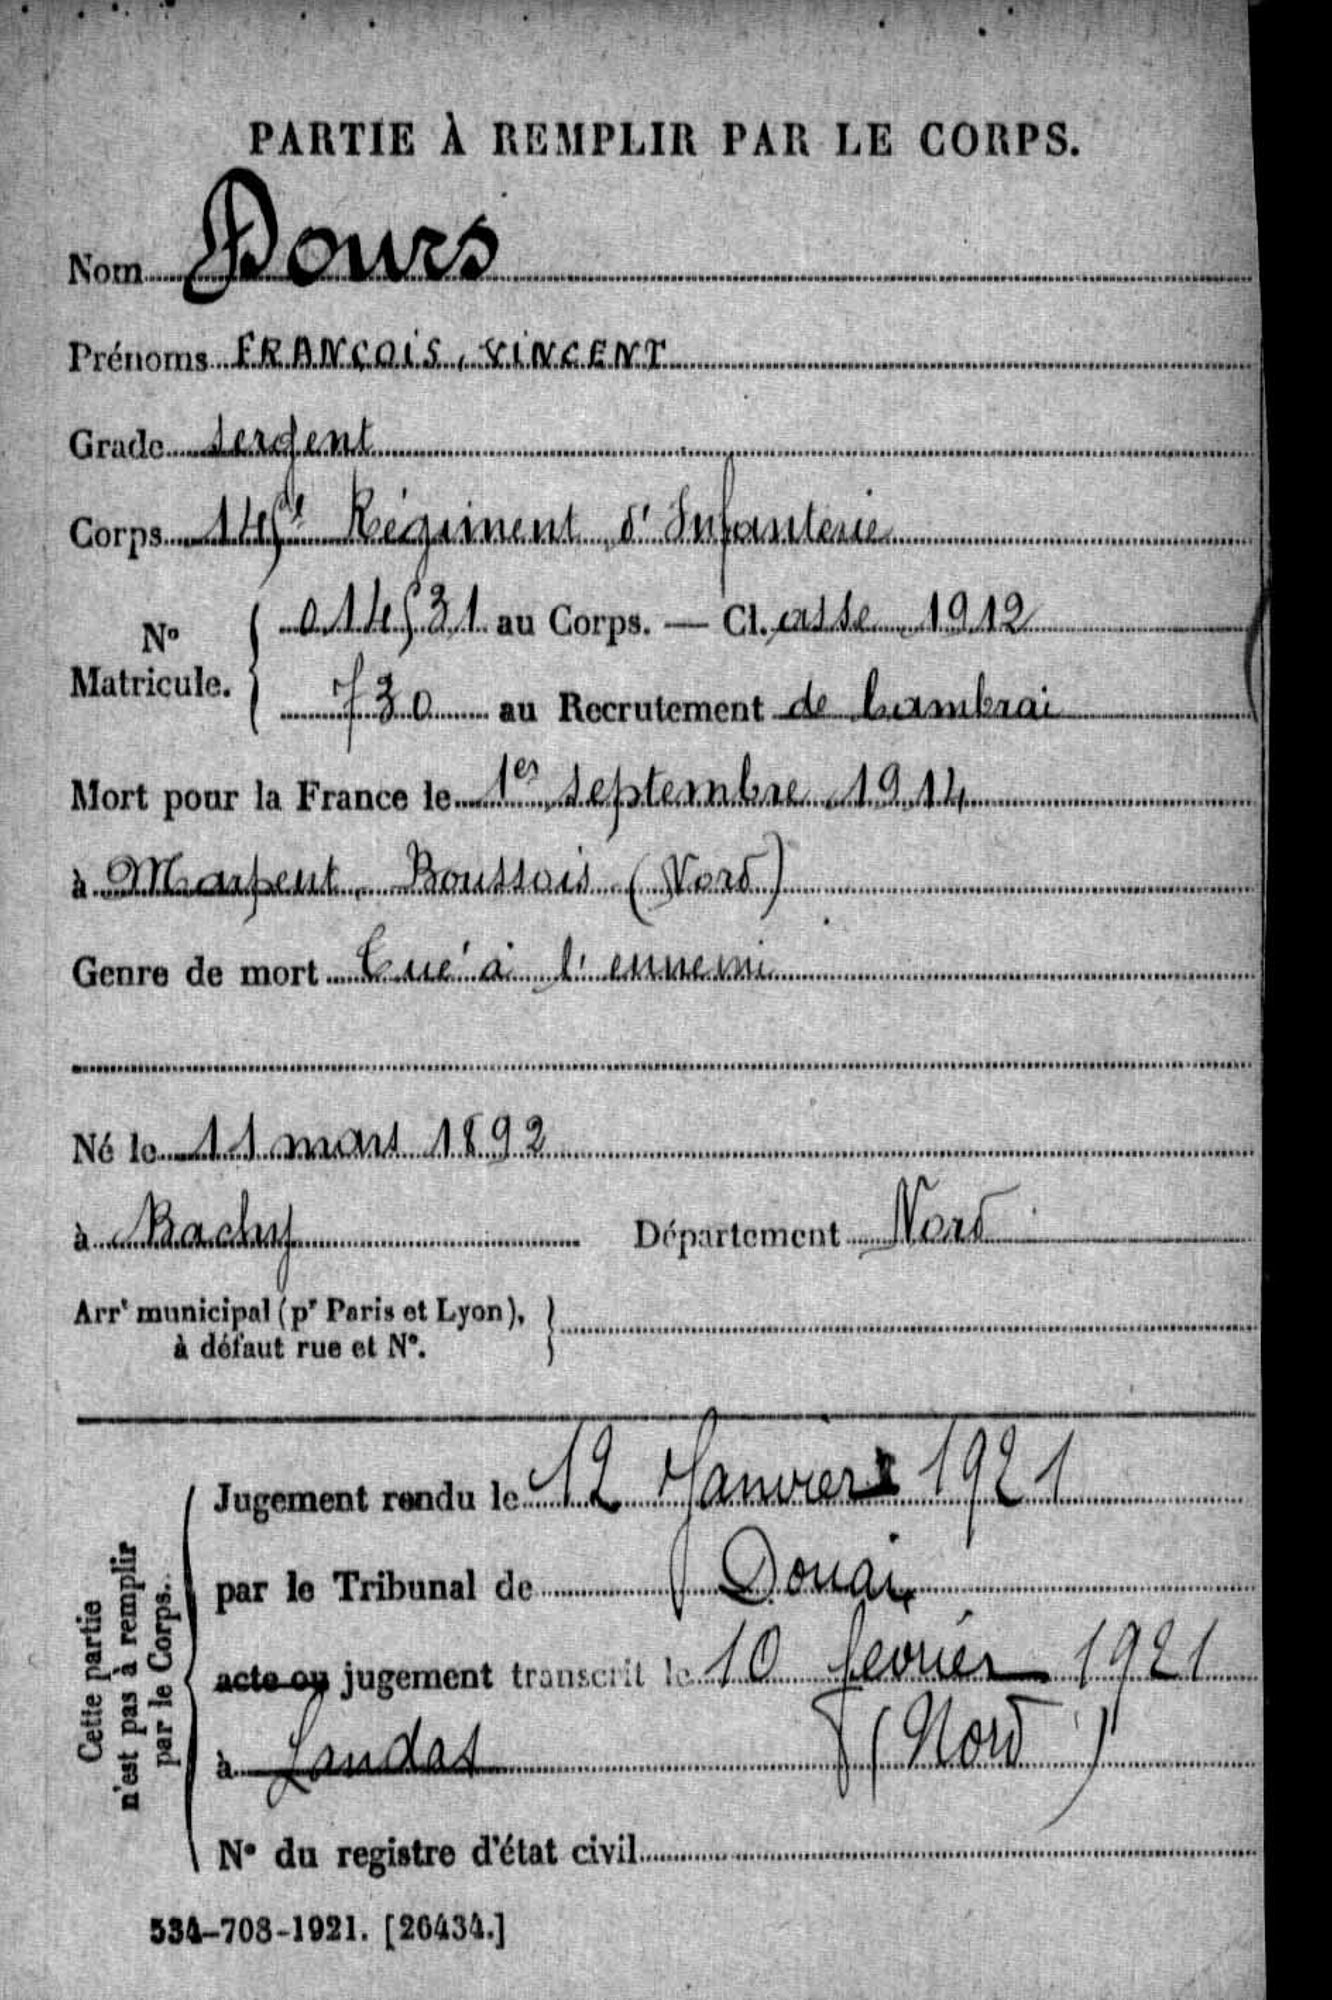 PARTIE À REMPLIR PAR LE CORPS.
Nom Dours
Prénoms FRANÇOIS, VINCENT
Grade sergent
Corps 145e Régiment d'Infanterie
No Matricule. 014531 au Corps. — Cl.asse 1912
730 au Recrutement de Cambrai
Mort pour la France le 1er septembre 1914
à Marpent, Boussois (Nord)
Genre de mort Tué à l'ennemi
Né le 11 mars 1892
à Bachy Département Nord
Arrt municipal (pr Paris et Lyon),
à défaut rue et No.
Cette partie
n'est pas à remplir
par le Corps.
Jugement rendu le 12 Janvier 1921
par le Tribunal de Douai
acte ou jugement transcrit le 10 fevrier 1921
à Landas (Nord)
No du registre d'état civil
534-708-1921. [26434.]